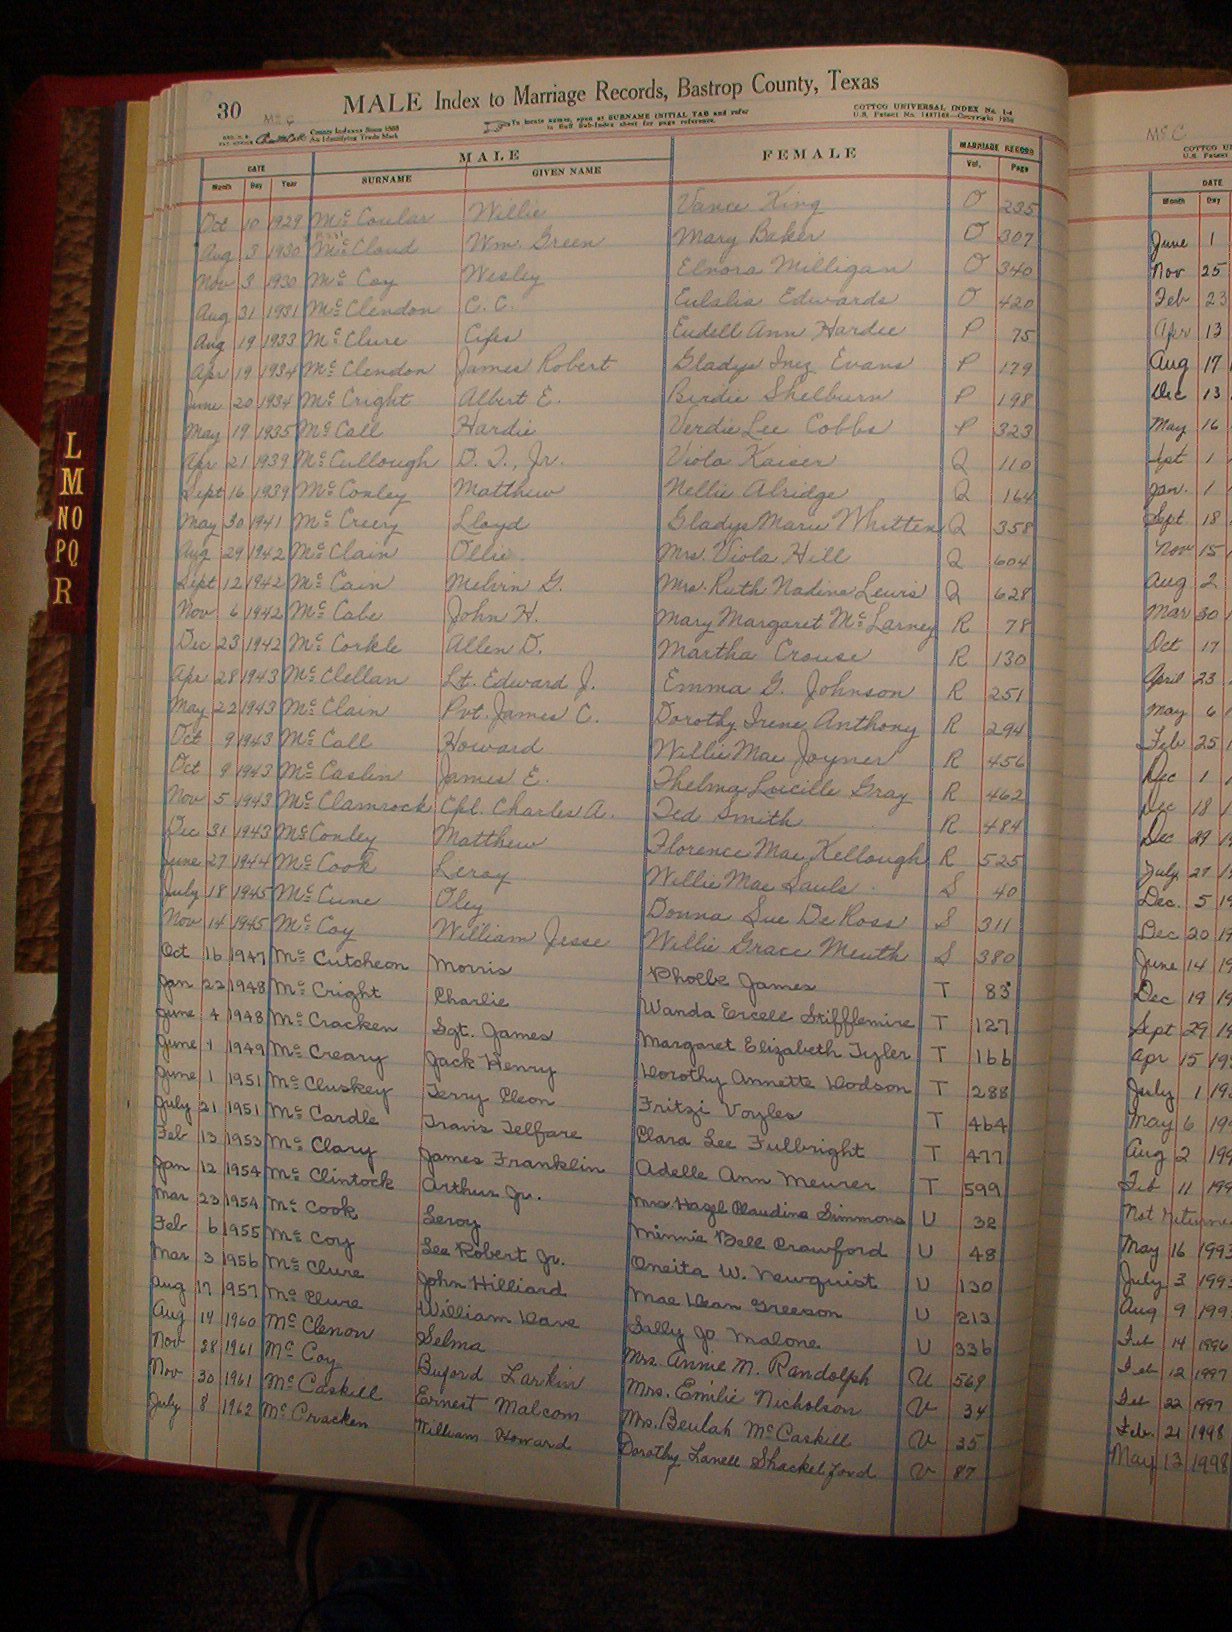 30
MALE Index to Marriage Records, Bastrop County, Texas
Mc C
County Indexes Since 1888
An Identifying Trade Mark
To locate names, open at SURNAME INITIAL TAB and refer
to Buff Sub-Index sheet for page reference.
COTTCO UNIVERSAL INDEX No.
DATE MALE FEMALE MARRIAGE RECORD
Month Day Year SURNAME GIVEN NAME Vol. Page
Oct 10 1929 McCoular Willie Vance King O 235
Aug 3 1930 McCloud Wm. Green Mary Baker O 307
Nov 3 1930 McCoy Wesley Elnora Milligan O 340
Aug 31 1931 McClendon C. C. Eulalia Edwards O 420
Aug 19 1933 McClure Eudell Ann Hardee P 75
Apr 19 1934 McClendon James Robert Gladys Inez Evans P 179
June 20 1934 McCright Albert E. Birdie Shelburn P 198
May 19 1935 McCall Hardie Verdie Lee Cobbs P 323
Apr 21 1939 McCullough D. T., Jr. Viola Kaiser Q 110
Sept 16 1939 McConley Matthew Nellie Alridge Q 164
May 30 1941 McCreery Lloyd Gladys Marie Whitten Q 358
Aug 29 1942 McClain Ollie Mrs. Viola Hill Q 604
Sept 12 1942 McCain Melvin G. Mrs. Ruth Nadine Lewis Q 628
Nov 6 1942 McCabe John H. Mary Margaret McLarney R 78
Dec 23 1942 McCorkle Allen D. Martha Crouse R 130
Apr 28 1943 McClellan Lt. Edward J. Emma G. Johnson R 251
May 22 1943 McClain Pvt. James C. Dorothy Irene Anthony R 294
Oct 9 1943 McCall Howard Willie Mae Joyner R 456
Oct 9 1943 McCaslin James E. Thelma Lucille Gray R 462
Nov 5 1943 McClamrock Cpl. Charles A. Ted Smith R 484
Dec 31 1943 McConley Matthew Florence Mae Kellough R 525
June 27 1944 McCook Leroy Willie Mae Sauls S 40
July 18 1945 McCune Oley Donna Sue DeRoss S 311
Nov 14 1945 McCoy William Jesse Willie Grace Meuth S 380
Oct 16 1947 McCutcheon Morris Phoebe James T 83
Jan 22 1948 McCright Charlie Wanda Ercell Stifflemire T 127
June 4 1948 McCracken Sgt. James Margaret Elizabeth Tyler T 166
June 1 1949 McCreary Jack Henry Dorothy Annette Dodson T 288
June 1 1951 McCluskey Terry Cleon Fritzi Voyles T 464
July 21 1951 McCardle Travis Telfare Clara Lee Fulbright T 477
Feb 13 1953 McClary James Franklin Adelle Ann Meurer T 599
Jan 12 1954 McClintock Arthur Jr. Mrs Hazel Claudine Simmons U 32
Mar 23 1954 McCook Leroy Minnie Bell Crawford U 48
Feb 6 1955 McCoy Lee Robert Jr. Oneita W. Newquist U 130
Mar 3 1956 McClure John Hilliard Mae Dean Greeson U 213
Aug 17 1957 McClure William Dave Sally Jo Malone U 336
Aug 19 1960 McClenon Selma Mrs. Annie M. Randolph U 569
Nov 28 1961 McCoy Buford Larkin Mrs. Emilie Nicholson V 34
Nov 30 1961 McCaskill Ernest Malcom Mrs. Beulah McCaskill V 35
July 8 1962 McCracken William Howard Dorothy Lanell Shackelford V 87
L
M
NO
PQ
R
Mc C
COTTCO
U.S. Patent No.
DATE
Month Day
June 1
Nov 25
Feb 23
Apr 13
Aug 17
Dec 13
May 16
Sept 1
Jan. 1
Sept. 18
Nov 15
Aug 2
Mar 30
Oct 17
April 23
May 6
Feb 25
Dec 1
Dec 18
Dec 29
July 27
Dec. 5
Dec 20
June 14
Dec 19
Sept 29
Apr 15
July 1
May 6
Aug 2
Feb 11
Not returne
May 16 1993
July 3
Aug 9
Feb 14 1996
Feb 12 1997
Feb 22 1997
Feb. 21 1998
May 13 1998